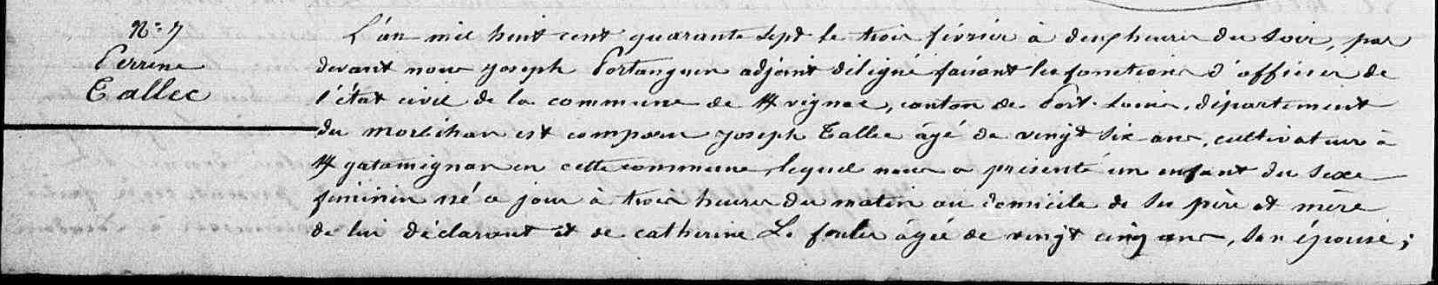 N.° 7
Perrine
Tallec
L'an mil huit cent quarante sept le trois février à deux heures du soir, par
devant nous joseph Portanguen adjoint délégué faisant les fonctions d'officier de
l'état civil de la commune de Kvignac, canton de Port-Louis, département
du morbihan est comparu joseph Tallec âgé de vingt six ans, cultivateur à
Kgatamignan en cette commune, lequel nous a présenté un enfant du sexe
féminin né ce jour à trois heures du matin au domicile de ses père et mère
de lui déclarant et de catherine Le fouler âgée de vingt cinq ans, son épouse;